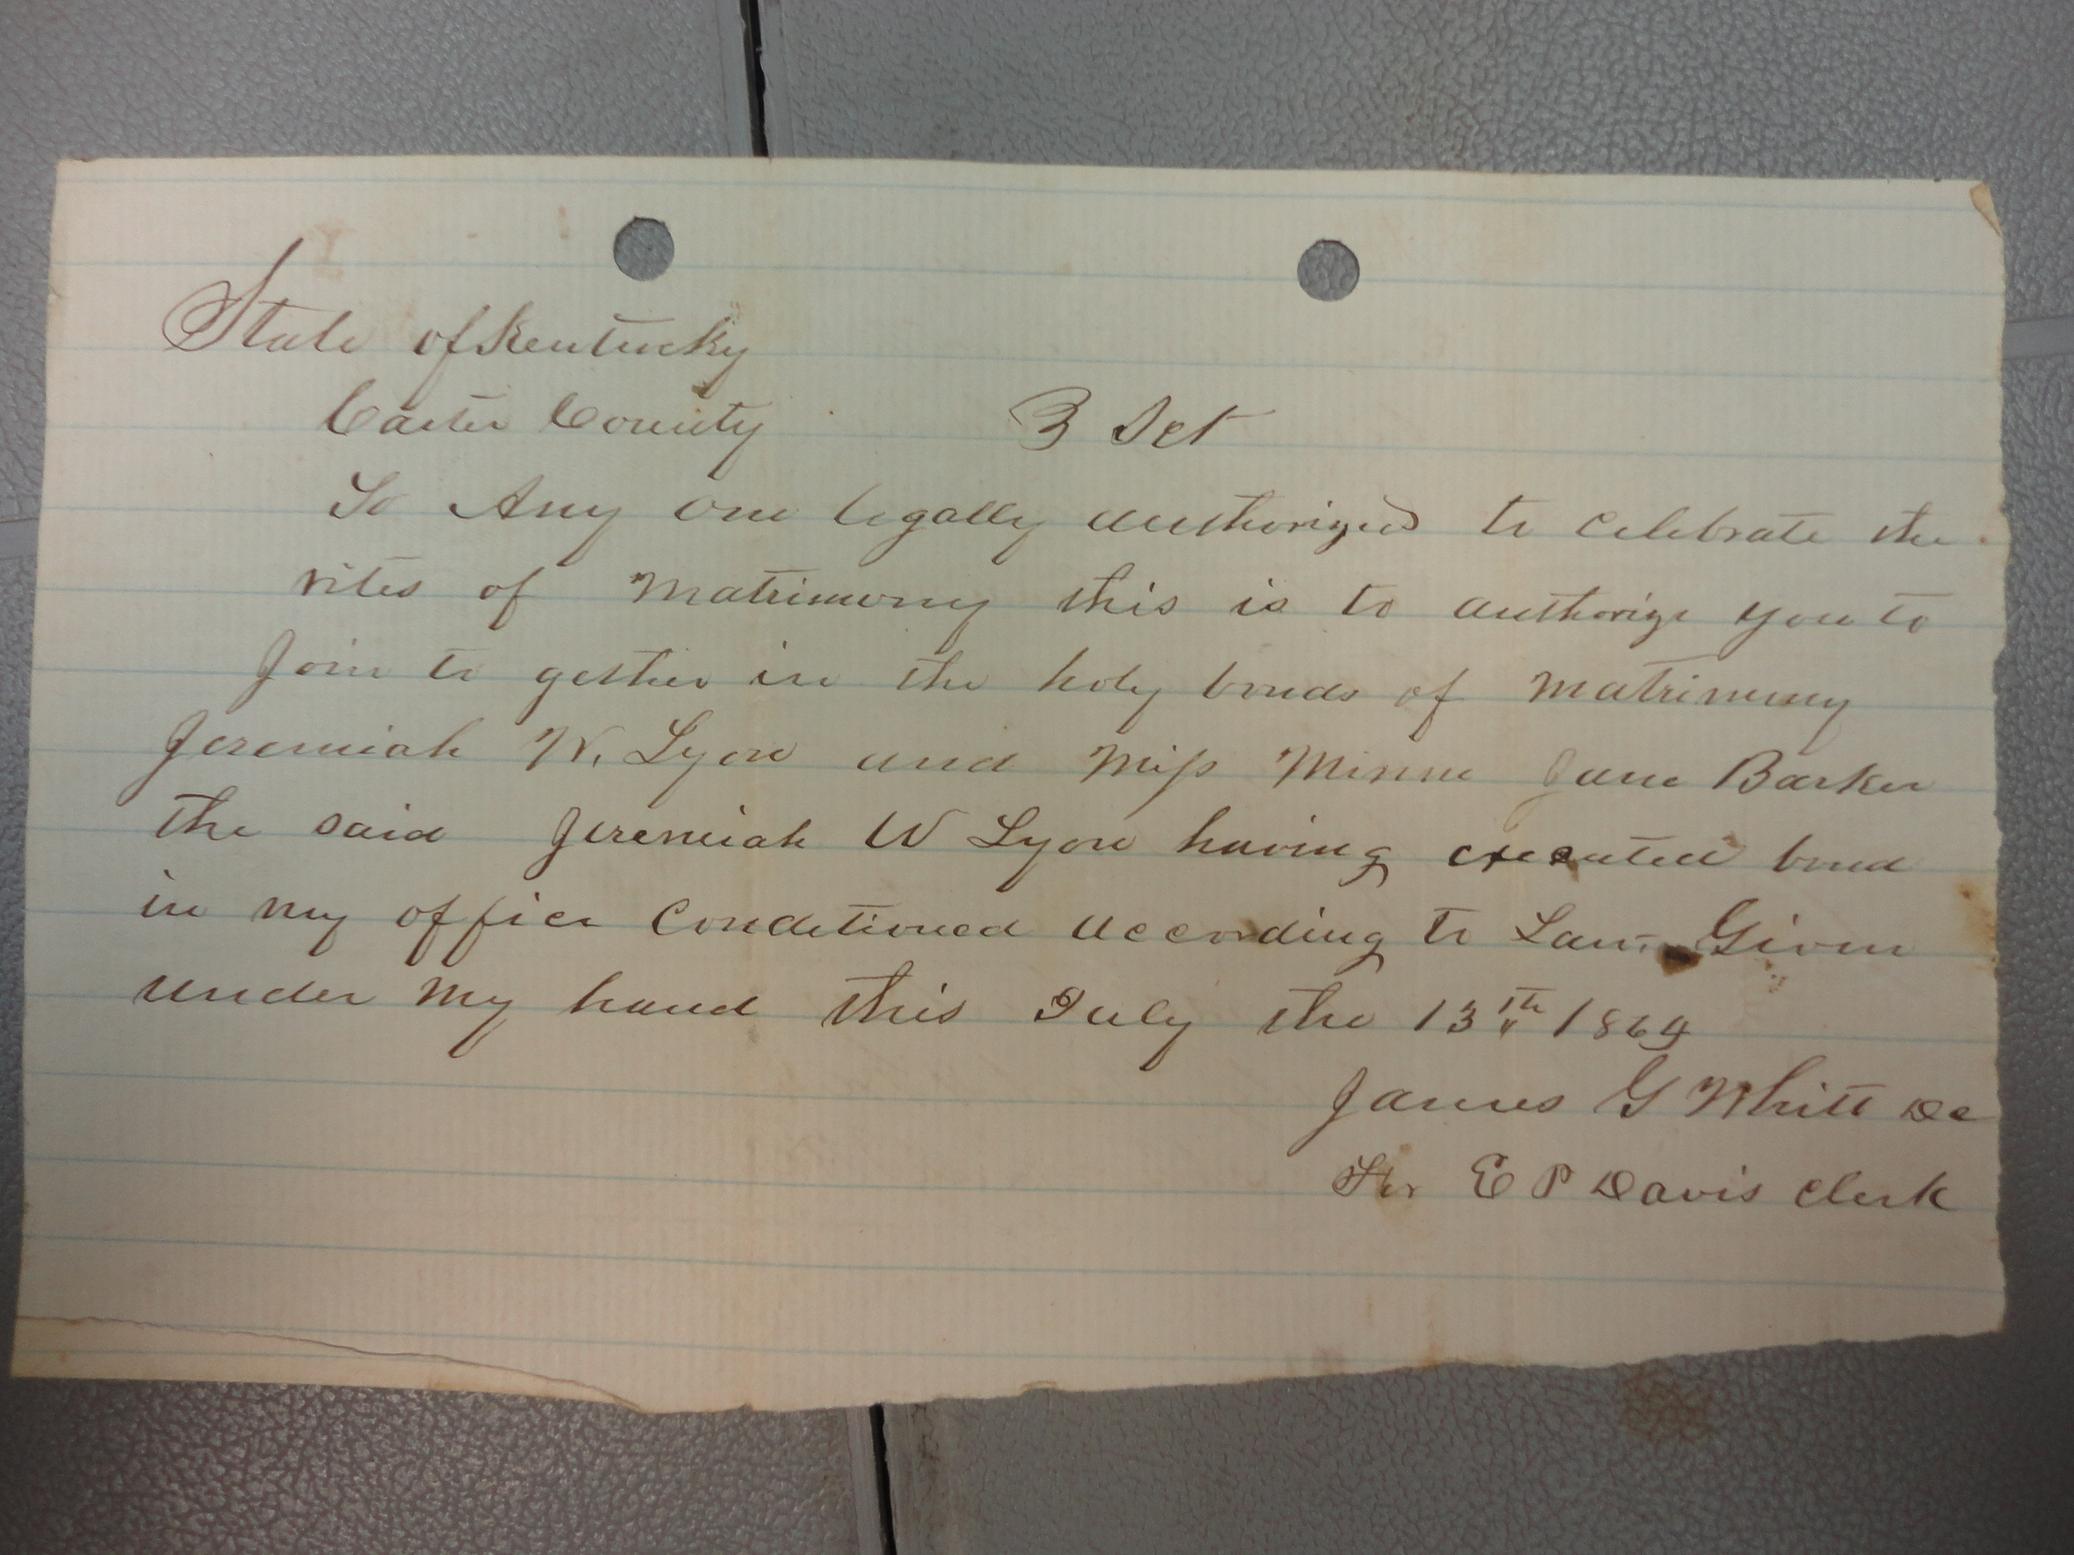 State of Kentucky
Carter County } Sct
To Any one legally authorized to celebrate the
rites of Matrimony this is to authorize you to
Join to gether in the holy bonds of Matrimony
Jeremiah W. Lyon and Miss Minne Jane Barker
the said Jeremiah W Lyon having executed bond
in my office Conditioned according to Law. Given
under my hand this July the 13th 1864
James G Whitt DC
For E P Davis Clerk